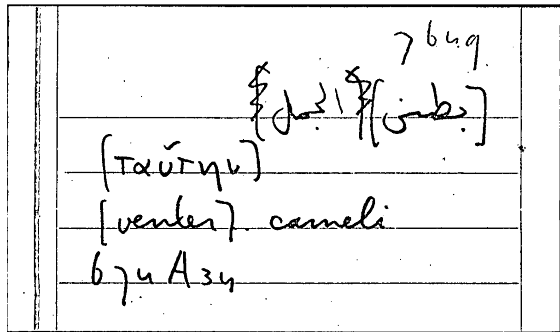 7 64 9
[بطن] {الجمل}
[ταύτην]
[venter] cameli
674 A 34